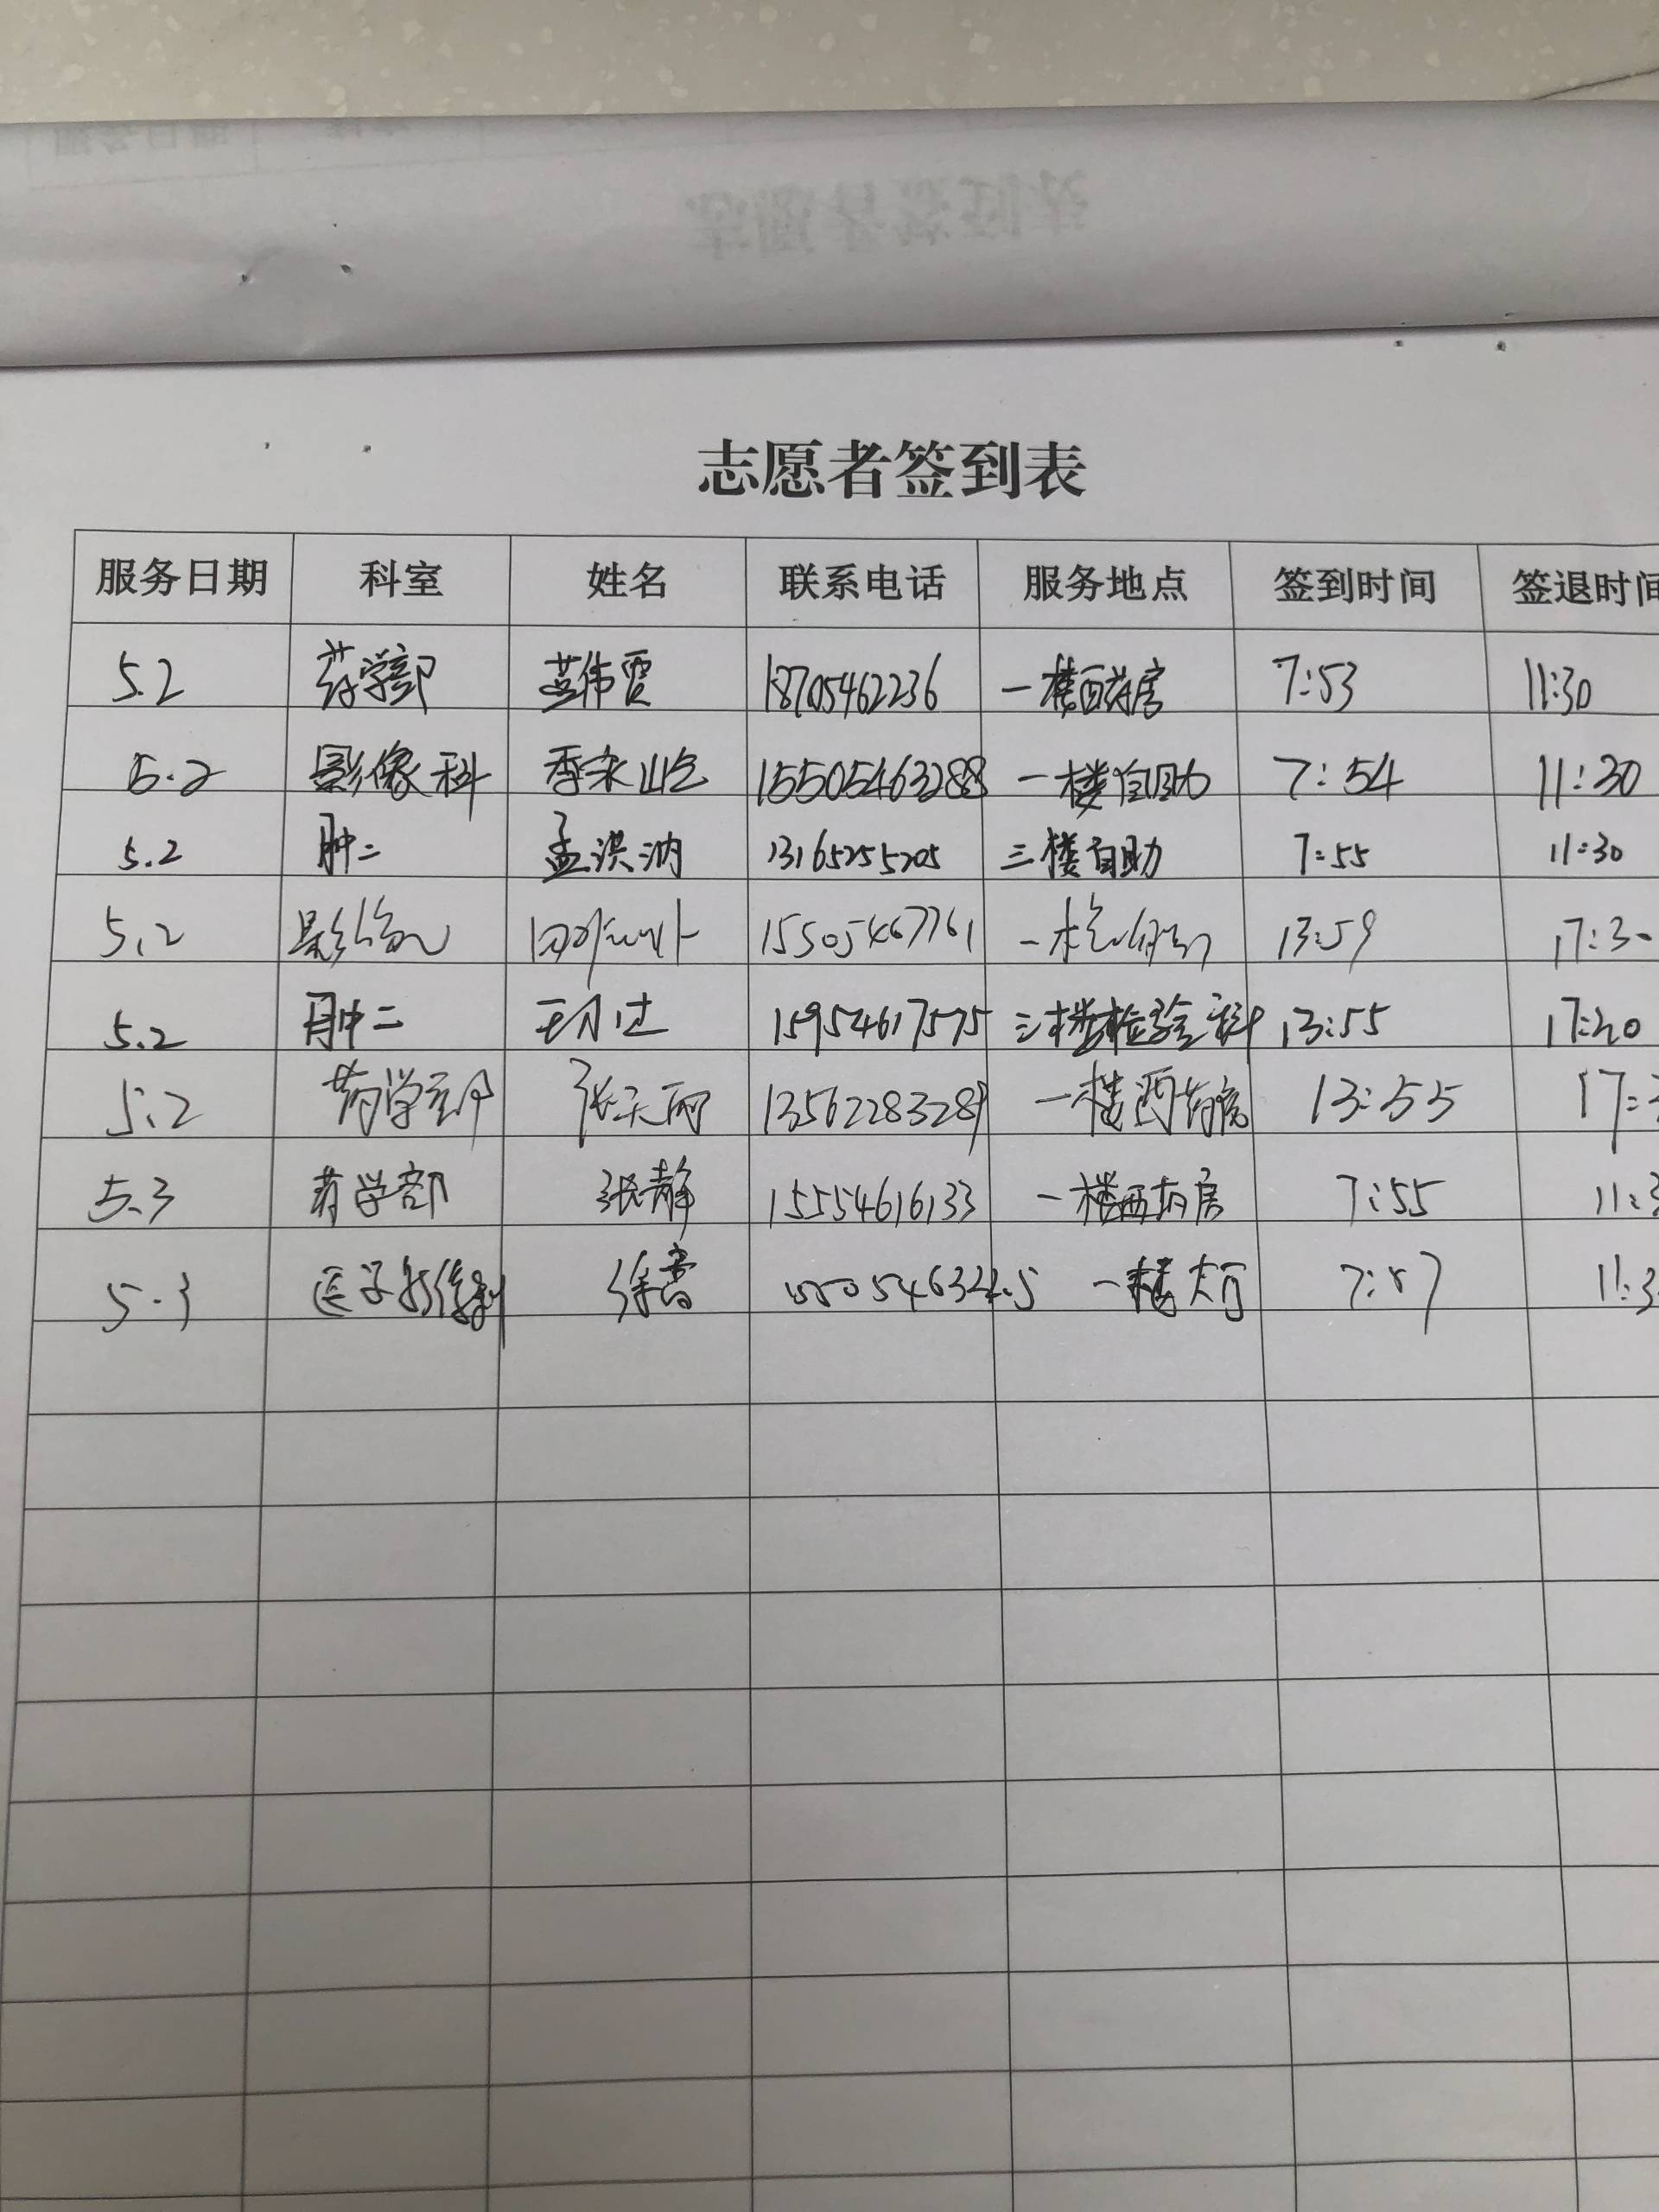 志愿者签到表
服务日期 科室 姓名 联系电话 服务地点 签到时间 签退时间
5.2 药学部 18705462236 一楼西药房 7:53 11:30
5.2 影像科 李宗屹 15505463288 一楼自助 7:54 11:30
5.2 肿二 孟洪讷 13165255205 三楼自助 7:55 11:30
5.2 影像 15505467761 13:59 17:3
5.2 肿二 15954617575 三楼检验科 13:55
5.2 药学部 张天丽 13562283289 一楼西药房 13:55 17:
5.3 药学部 张静 15554616133 一楼西药房 7:55 11:3
5.3 一楼大厅 7:57 11:3